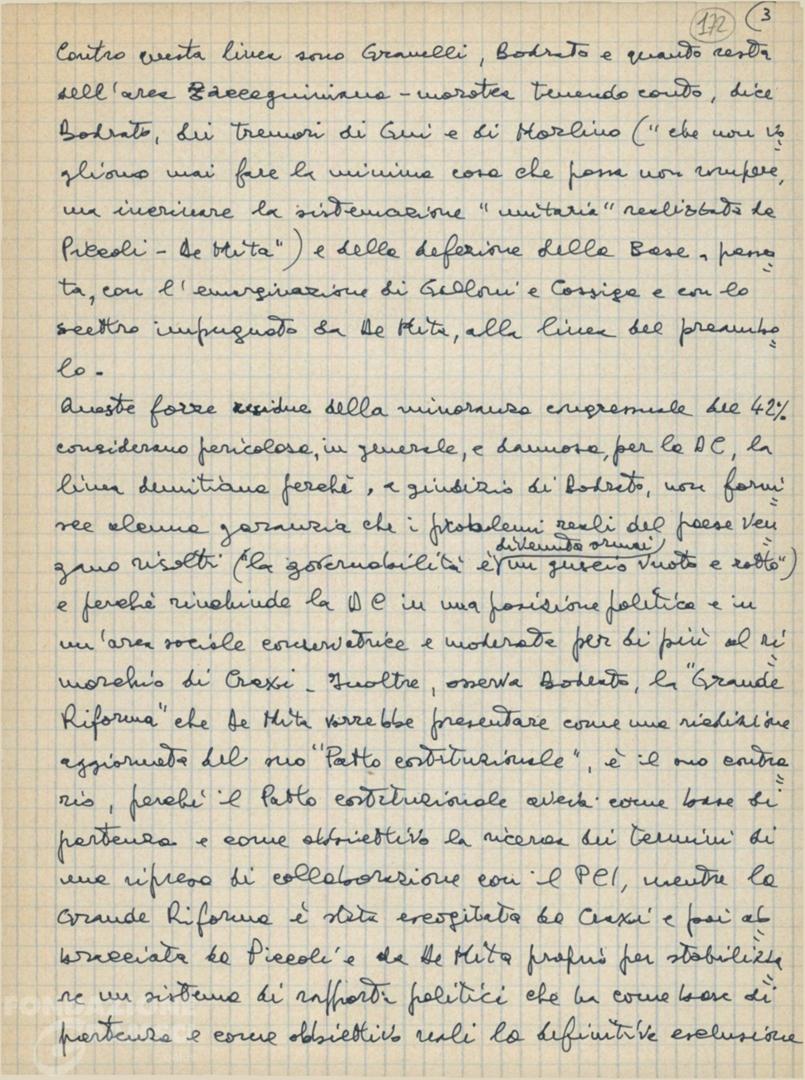 172 3
Contro questa linea sono Granelli, Bodrato e quanto resta
dell'area zaccagniniana - morotea tenendo conto, dice
Bodrato, dei tremori di Gui e di Morlino ("che non vo
gliono mai fare la minima cosa che possa non rompere,
ma incrinare la sistemazione "unitaria" realizzata da
Piccoli - De Mita") e della defezione della Base, passa
ta, con l'emarginazione di Galloni e Cossiga e con lo
scettro impugnato da De Mita, alla linea del preambo
lo.
Queste forze residue della minoranza congressuale del 42%
considerano pericolosa, in generale, e dannosa, per la DC, la
linea demitiana perchè, a giudizio di Bodrato, non forni
sce alcuna garanzia che i problemi reali del paese ven
gano risolti ("la governabilità è divenuta ormai un guscio vuoto e rotto")
e perchè rinchiude la DC in una posizione politica e in
un'area sociale conservatrice e moderata per di più al ri
morchio di Craxi. Inoltre, osserva Bodrato, la "Grande
Riforma" che De Mita vorrebbe presentare come una riedizione
aggiornata del suo "Patto costituzionale", è il suo contra
rio, perchè il Patto costituzionale aveva come base di
partenza e come obbiettivo la ricerca dei termini di
una ripresa di collaborazione con il PCI, mentre la
Grande Riforma è stata escogitata da Craxi e poi ab
bracciata da Piccoli e da De Mita proprio per stabilizza
re un sistema di rapporti politici che ha come base di
partenza e come obbiettivo reali la definitiva esclusione